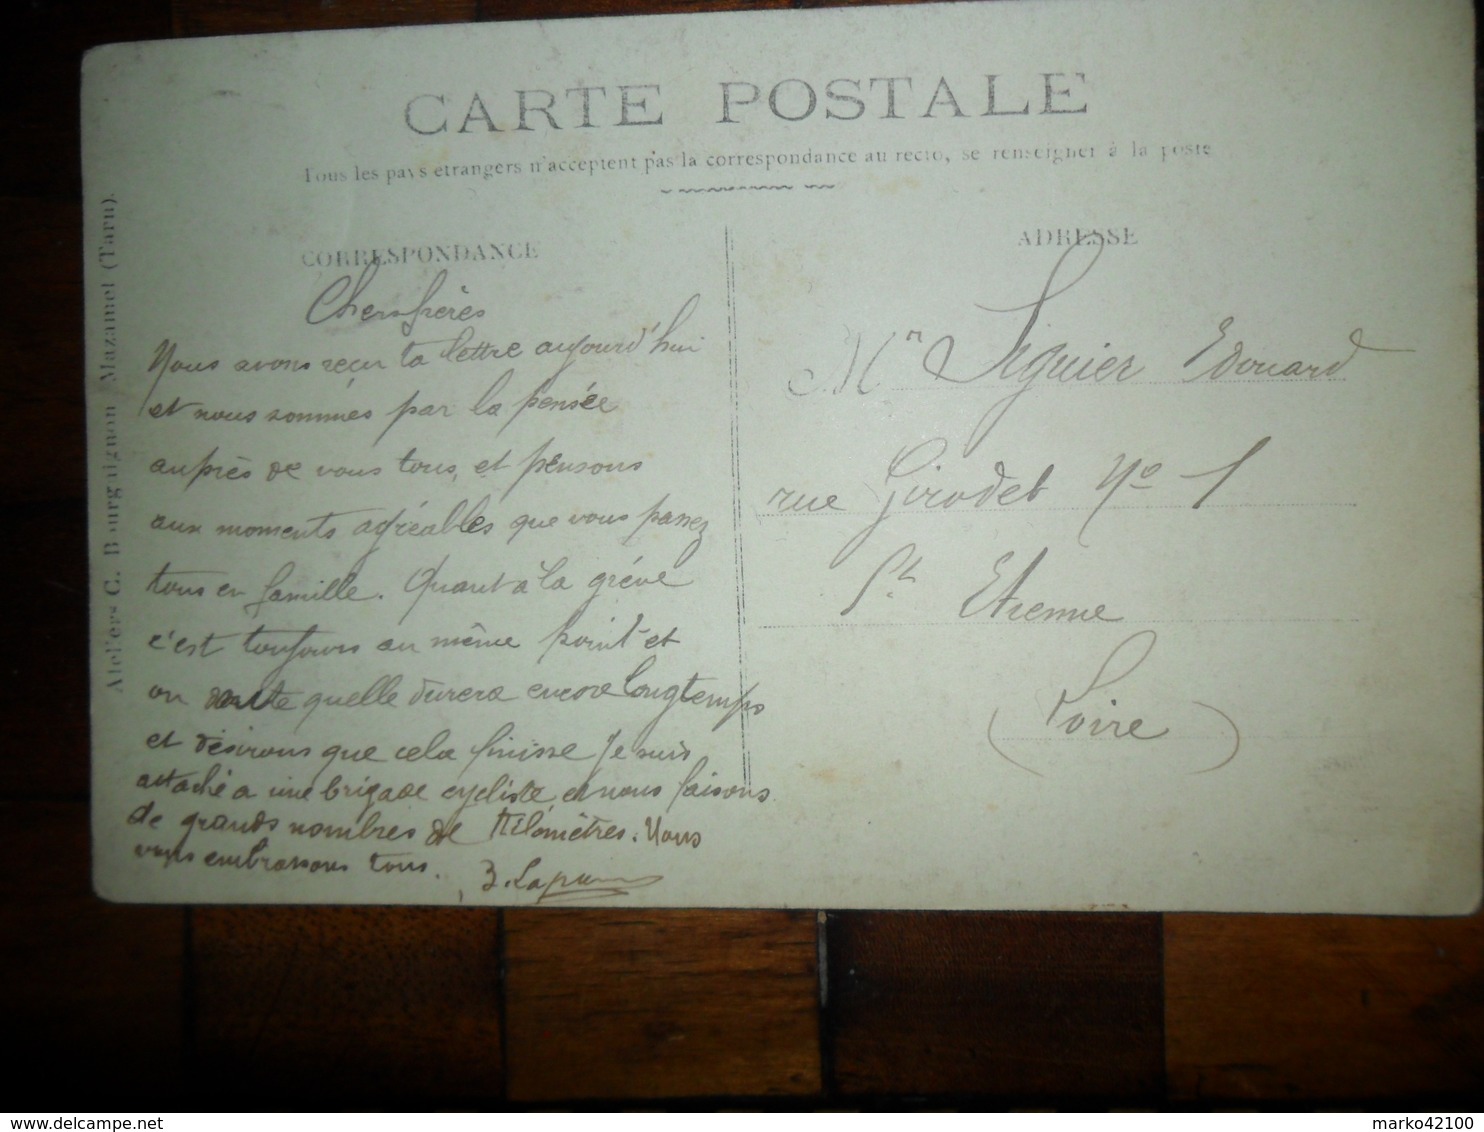 CARTE POSTALE
Tous les pays etrangers n'acceptent pas la correspondance au recto, se renseigner à la poste
CORRESPONDANCE
Chers frères
Nous avons reçu ta lettre aujourd'hui
et nous sommes par la pensée
auprès de vous tous, et pensons
aux moments agréables que vous passez
tous en famille. Quant à la grève
c'est toujours au même point et
on doute quelle durera encore longtemps
et désirons que cela finisse Je suis
attaché a une brigade cycliste et nous faisons
de grands nombres de Kilomètres. Nous
vous embrassons tous.
ADRESSE
Mr Siguier Edouard
rue Girodet No 1
St Etienne
(Loire)
Ateliers C. Bourguignon Mazamet (Tarn).
marko42100